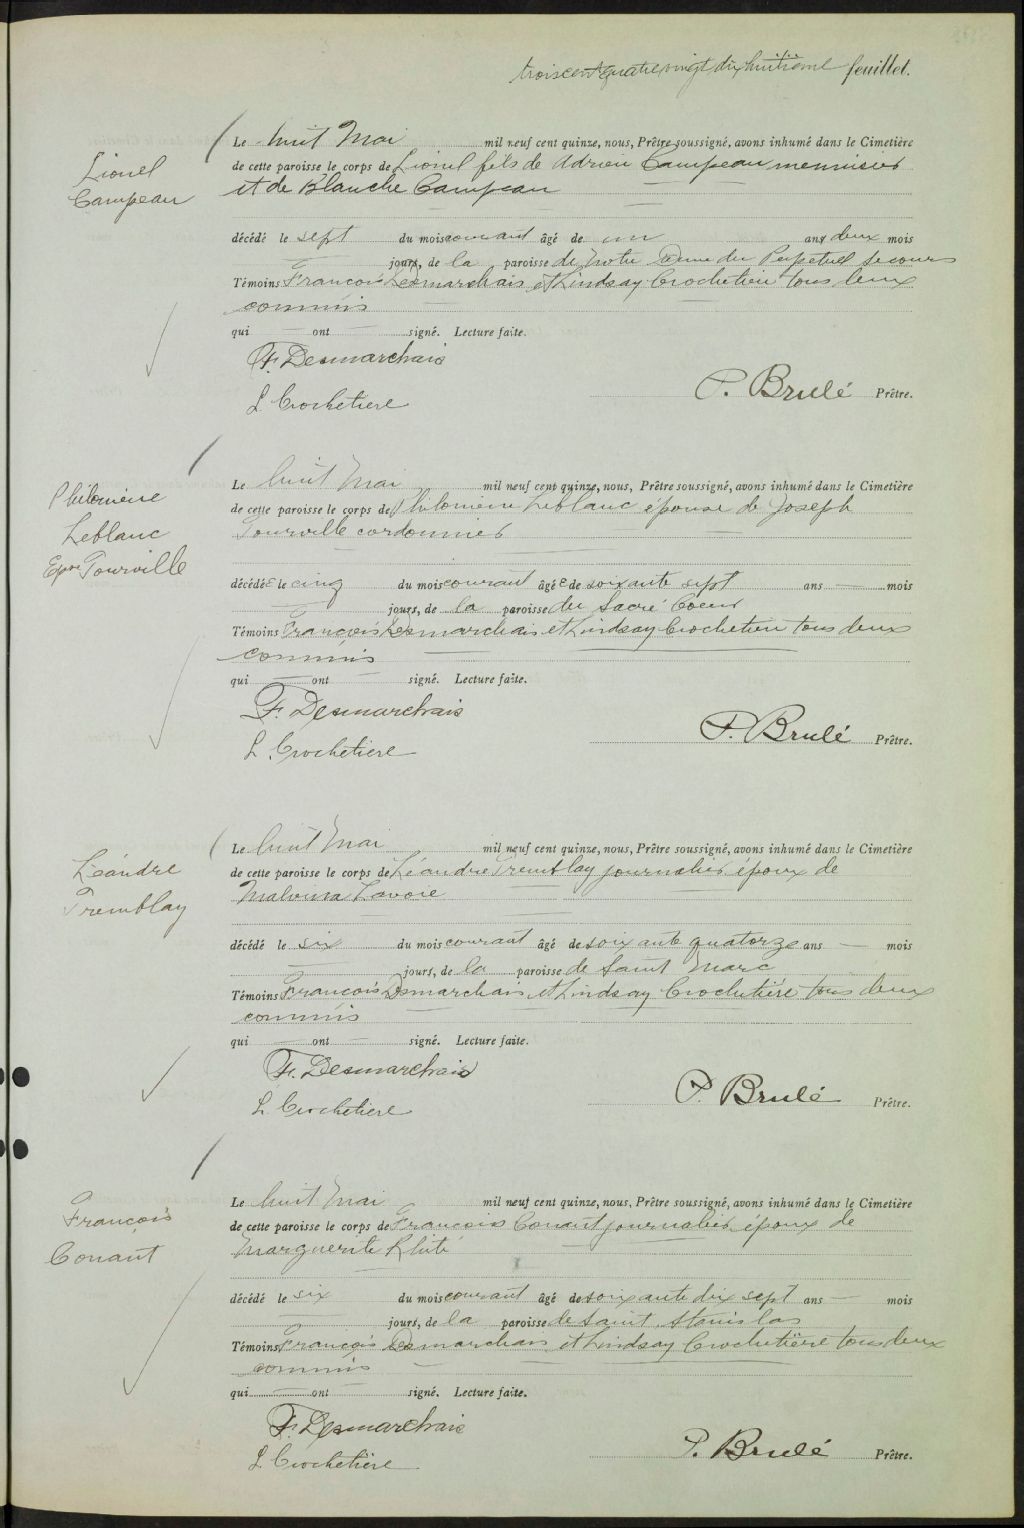 trois cent quatre vingt dix huitième feuillet.
Lionel
Campeau
Le huit Mai mil neuf cent quinze, nous, Prêtre soussigné, avons inhumé dans le Cimetière
de cette paroisse le corps de Lionel fils de Adrien Campeau menuisier
et de Blanche Campeau
décédé le sept du mois courant âgé de un ans deux mois
jours, de la paroisse de Notre Dame du Perpetuel Secours
Témoins François Desmarchais et Lindsay Crochetière tous deux
commis
qui ont signé. Lecture faite.
F. Desmarchais
L. Crochetiere
P. Brulé Prêtre.
Philomène
Leblanc
Epse Tourville
Le huit Mai mil neuf cent quinze, nous, Prêtre soussigné, avons inhumé dans le Cimetière
de cette paroisse le corps de Philomène Leblanc épouse de Joseph
Tourville cordonnier
décédée le cinq du mois courant âgée de soixante sept ans mois
jours, de la paroisse du Sacré Coeur
Témoins François Desmarchais et Lindsay Crochetière tous deux
commis
qui ont signé. Lecture faite.
F. Desmarchais
L. Crochetiere
P. Brulé Prêtre.
Léandre
Tremblay
Le huit Mai mil neuf cent quinze, nous, Prêtre soussigné, avons inhumé dans le Cimetière
de cette paroisse le corps de Léandre Tremblay journalier époux de
Malvina Lavoie
décédé le six du mois courant âgé de soixante quatorze ans mois
jours, de la paroisse de Saint Marc
Témoins François Desmarchais et Lindsay Crochetière tous deux
commis
qui ont signé. Lecture faite.
F. Desmarchais
L. Crochetiere
P. Brulé Prêtre.
François
Conant
Le huit Mai mil neuf cent quinze, nous, Prêtre soussigné, avons inhumé dans le Cimetière
de cette paroisse le corps de François Conant journalier époux de
Marguerite
décédé le six du mois courant âgé de soixante dix sept ans mois
jours, de la paroisse de Saint Stanislas
Témoins François Desmarchais et Lindsay Crochetière tous deux
commis
qui ont signé. Lecture faite.
F. Desmarchais
L. Crochetière
P. Brulé Prêtre.